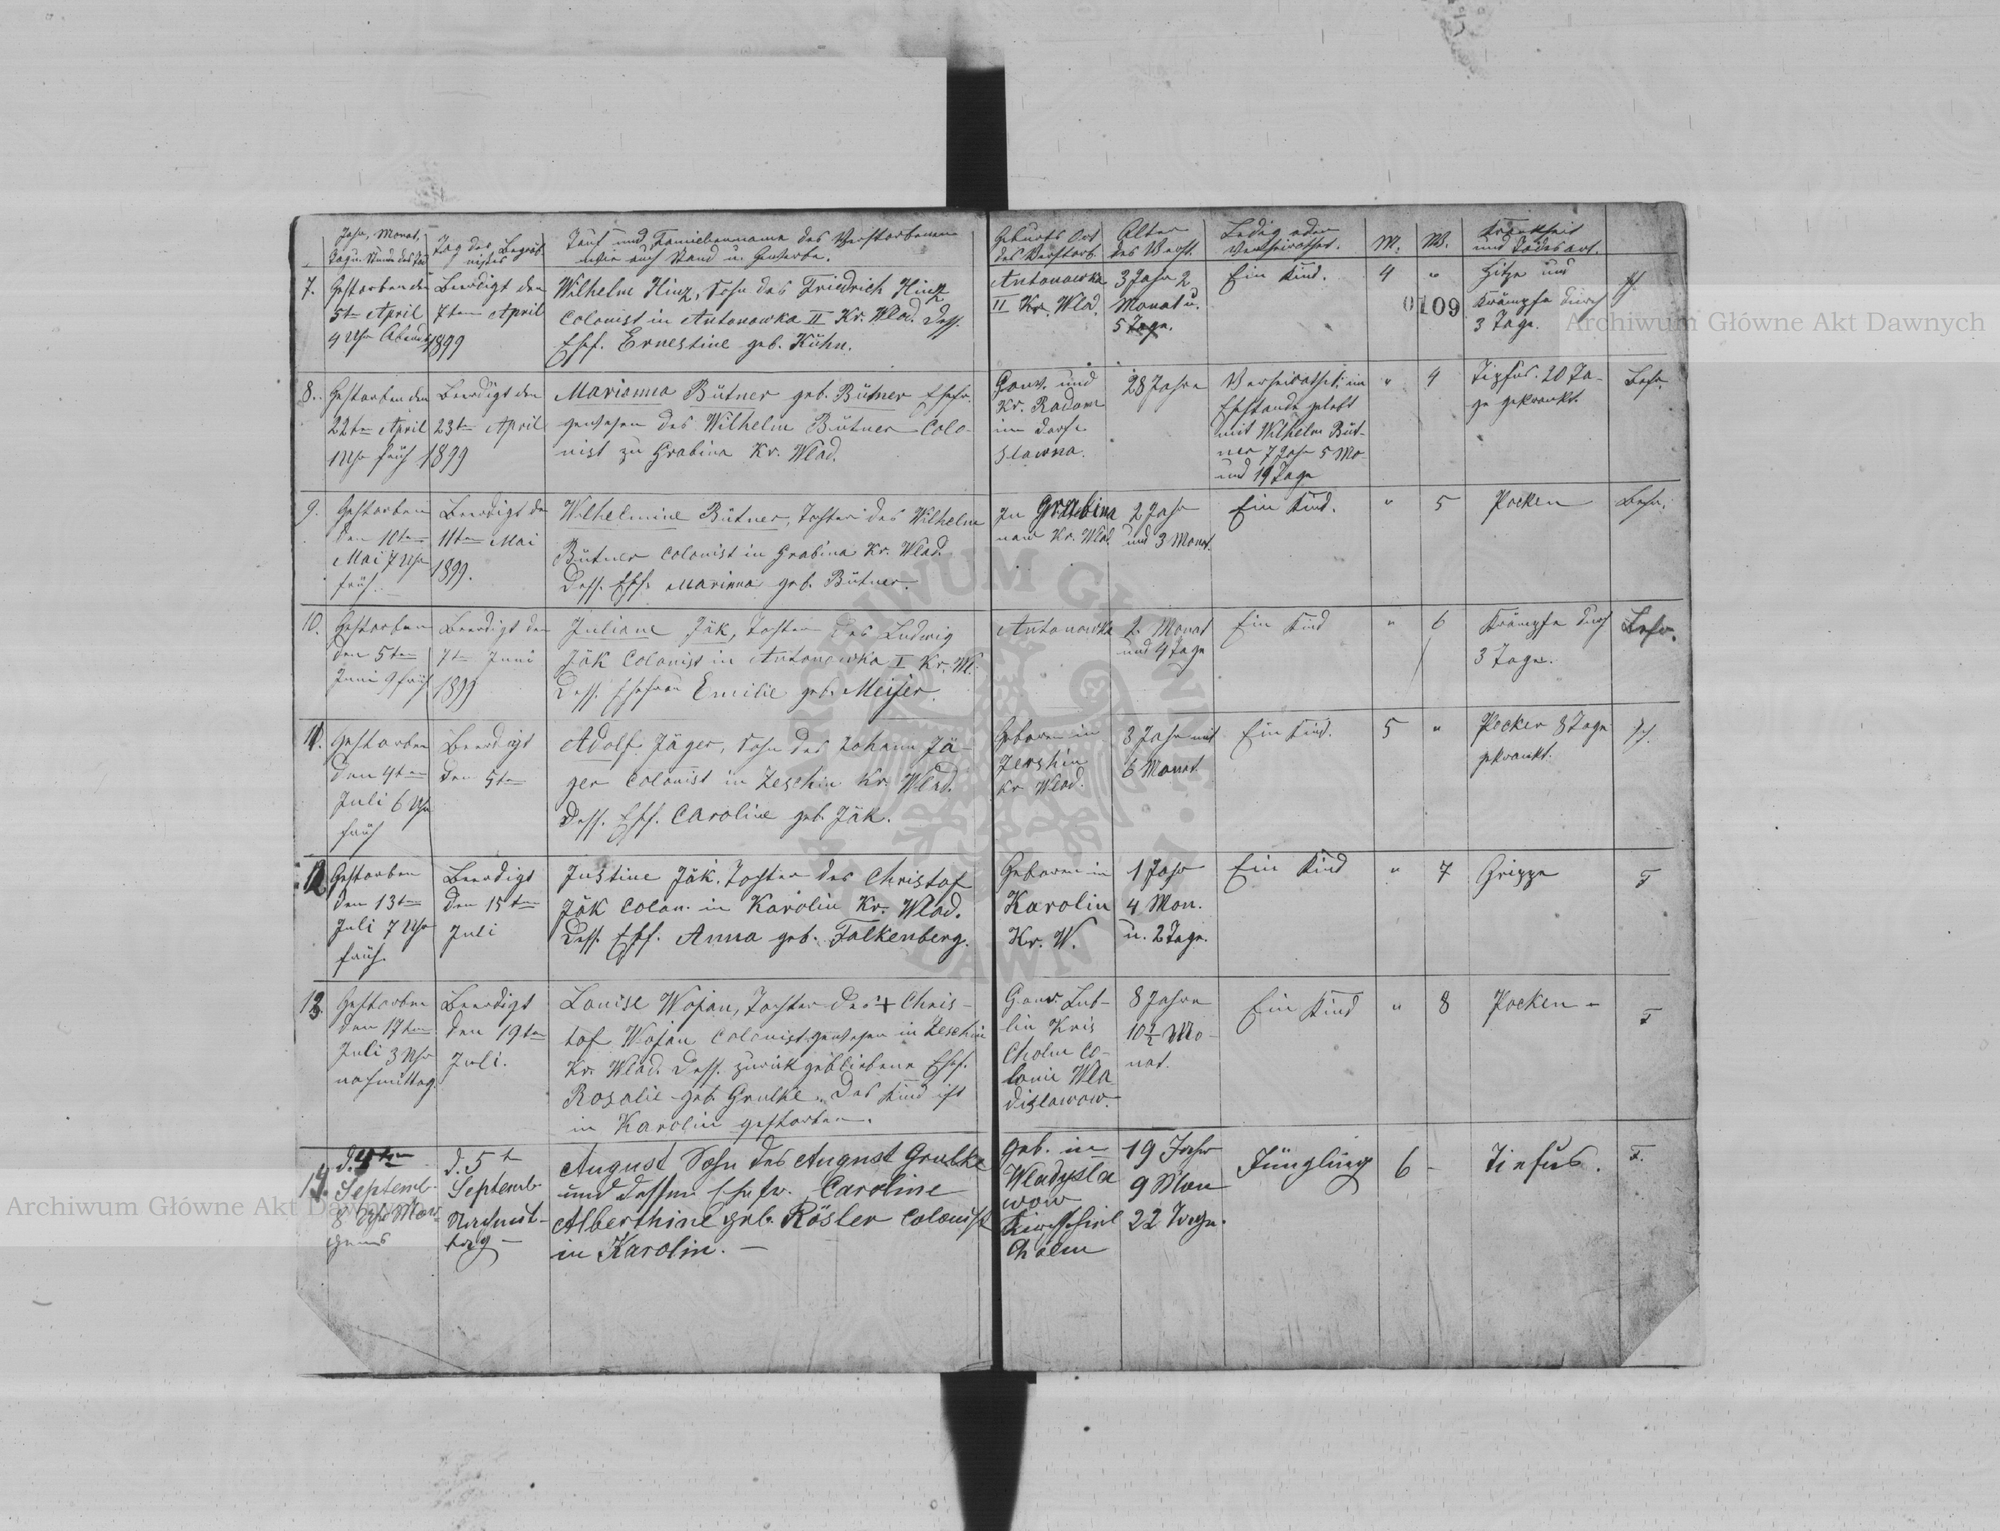 Jahr, Monat,
Tag der Begräb-
nisses
Tauf und Familienname des Verstorbenen
wie auch Stand u. Gewerbe.
Geburts Ort
des Verstorb.
Alter
des Verst.
Ledig oder
Verheirathet.
M.
W.
Krankheit
und Todesart.
7.
Gestorben den
5ten April
9 Uhr Abends
Beerdigt den
7ten April
1899
Wilhelm Hinz, Sohn des Friedrich Hinz
Colonist in Antonowka II Kr. Wlad. Dess.
Ehef. Ernestine geb. Kühn.
Antonowka
II Kr. Wlad.
3 Jahr 2
Monat u.
5 Tage.
Ein Kind.
4
"
Hitze und
Krämpfe durch
3 Tage.
0109
8.
Gestorben den
22ten April
1 Uhr früh
Beerdigt den
23ten April
1899
Marianna Bütner geb. Bütner Ehefr.
gewesen des Wilhelm Bütner Colo-
nist zu Grabina Kr. Wlad.
Gouv. und
Kr. Radom
im Dorfe
Slawna.
28 Jahre
Verheirathet; im
Ehestande gelebt
mit Wilhelm Büt-
ner 7 Jahr 5 Mo
und 19 Tage
"
4
Tipfus. 20 Ta-
ge gekrankt.
9.
Gestorben
den 10ten
Mai 7 Uhr
früh.
Beerdigt den
11ten Mai
1899.
Wilhelmine Bütner, Tochter des Wilhelm
Bütner Colonist in Grabina Kr. Wlad.
Dess. Ehf. Marianna geb. Bütner.
In Grabina
Kr. Wlad.
2 Jahr
und 3 Monat.
Ein Kind.
"
5
Pocken
10.
Gestorben
den 5ten
Juni 9 früh
Beerdigt den
7ten Juni
1899
Juliane Jäk, Tochter des Ludwig
Jäk Colonist in Antonowka I Kr. Wl.
Dess. Ehefrau Emilie geb. Meijer.
Antonowka
2 Monat
und 9 Tage
Ein Kind
"
6
Krämpfe durch
3 Tage.
11.
Gestorben
den 4ten
Juli 6 Uhr
früh
Beerdigt
den 5ten
Adolf Jäger, Sohn des Johann Jä-
ger Colonist in Zeschin Kr. Wlad.
Dess. Ehf. Caroline geb. Jäk.
Geboren in
Zershin
Kr. Wlad.
3 Jahr und
6 Monat
Ein Kind.
5
"
Pocken 8 Tage
gekrankt.
12
Gestorben
den 13ten
Juli 7 Uhr
früh.
Beerdigt
den 15ten
Juli
Justine Jäk. Tochter des Christof
Jäk Colon. in Karolin Kr. Wlad.
Dess. Ehf. Anna geb. Falkenberg.
Geboren in
Karolin
Kr. W.
1 Jahr
4 Mon.
u. 2 Tage.
Ein Kind
"
7
Grippe
F
13.
Gestorben
den 17ten
Juli 3 Uhr
nachmittag.
Beerdigt
den 19ten
Juli.
Louise Wojan, Tochter des + Chris-
tof Wojan Colonist gewesen in Zeschin
Kr. Wlad. Dess. zurückgebliebene Ehef.
Rosalie geb. Grulke. Das Kind ist
in Karolin gestorben.
Gouv. Lub-
lin Kris
Cholm Co-
lonie Wla
dislawow.
8 Jahre
10½ Mo-
nat.
Ein Kind
"
8
Pocken -
F
14.
d. 4ten
Septemb.
8 Uhr Mor-
gens
d. 5t
Septemb.
Nachmit-
tag -
August Sohn des August Grulke
und dessen Ehefr. Caroline
Alberthine geb. Rösler Colonist
in Karolin. -
geb. in
Wladysla
wow
Kirchspiel
Cholm
19 Jahr
9 Mon
22 Tage.
Jüngling
6
-
Tiefus.
F.
Archiwum Główne Akt Dawnych
Archiwum Główne Akt Dawnych